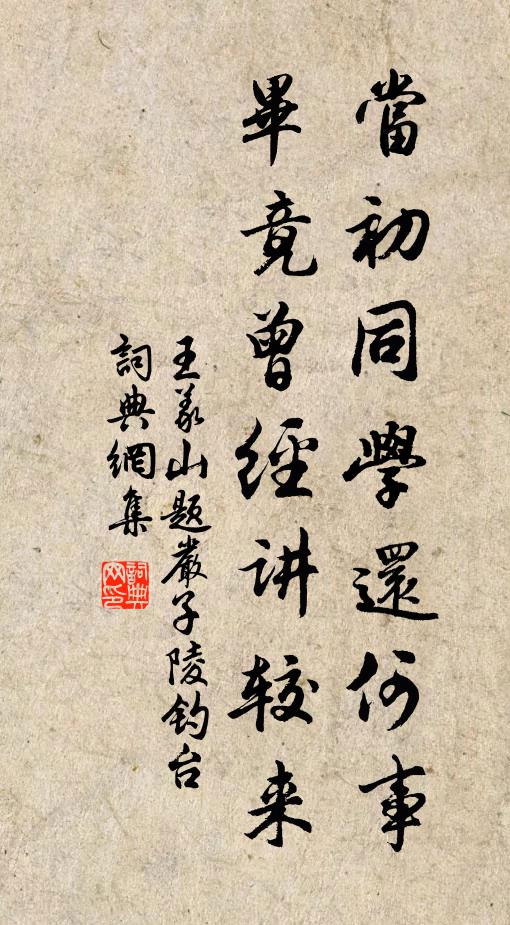 當初同學還何事
畢竟曾經讲較来
王義山題嚴子陵钓台
詞典網集
詞典网印